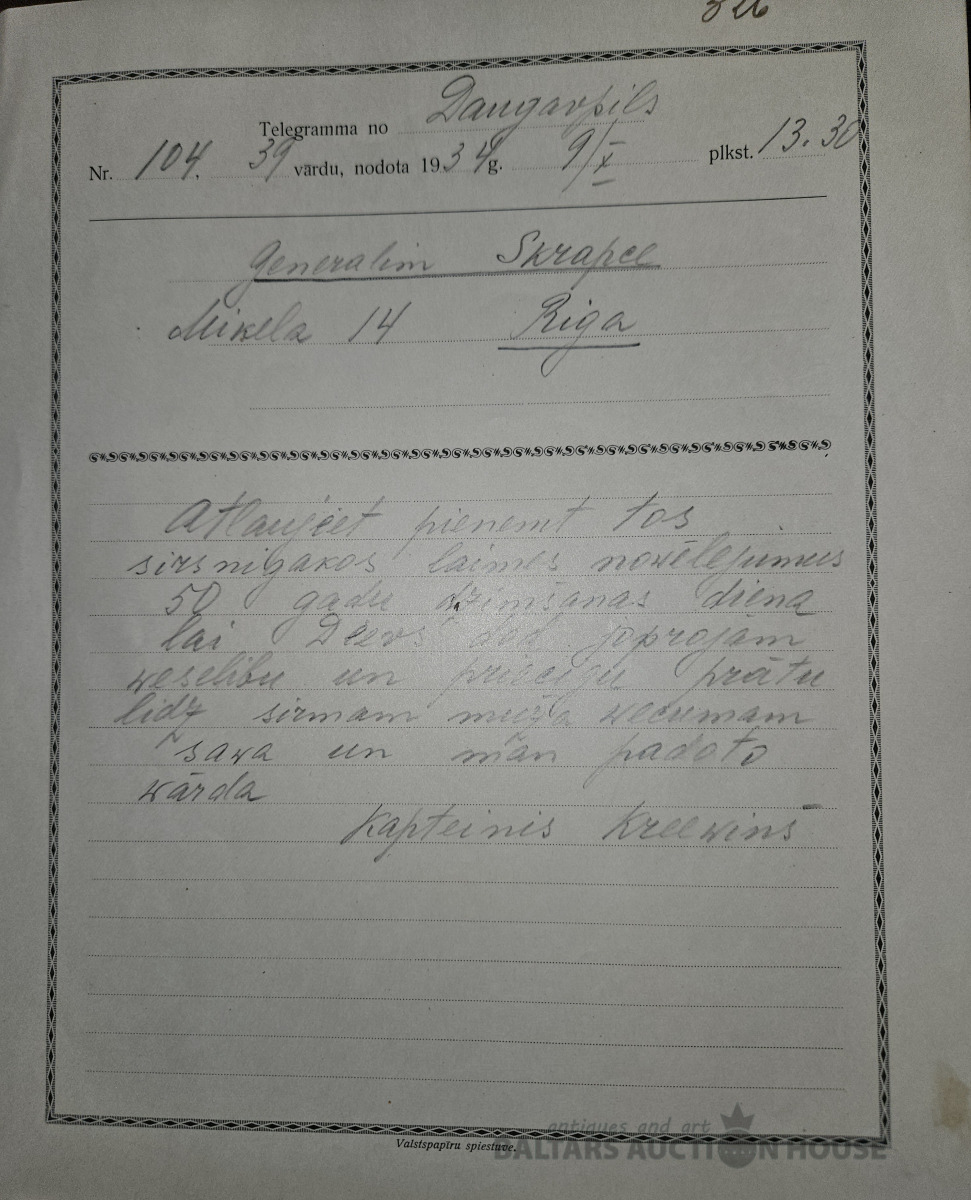 326
Telegramma no Daugavpils
Nr. 104. 39 vārdu, nodota 1934g. 9/X plkst. 13.30
Generalim Skrapce
Mikela 14 Riga
Atlaujeet pienemt tos
sirsnigakos laimes novēlejumus
50 gadu dzimšanas diena
lai Deevs dod joprojām
weselibu un priecigu prātu
lidz sirmam muža wecumam
sawa un man padoto
wārda
Kapteinis Kreewinš
Valstspapīru spiestuve.
antiques and art
BALTARS AUCTION HOUSE